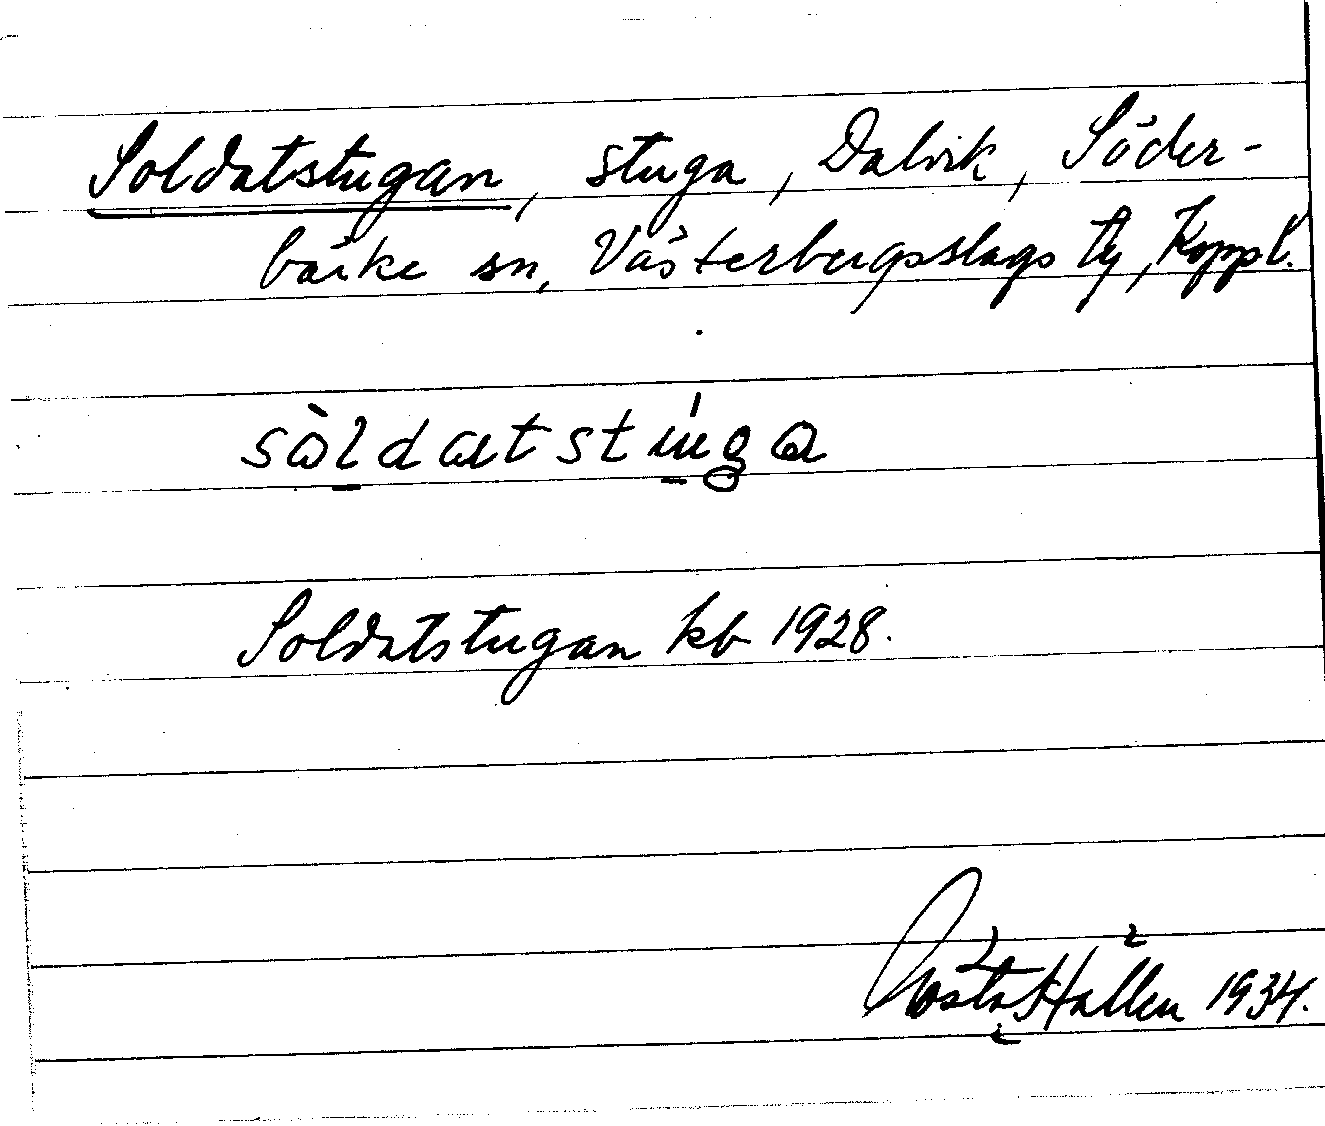 Soldatstugan, stuga, Dalvik, Söder-
bärke sn, Västerbergslags tg, Koppl.
sòldatstúga
Soldatstugan kb 1928.
Gösta Hallén 1934.